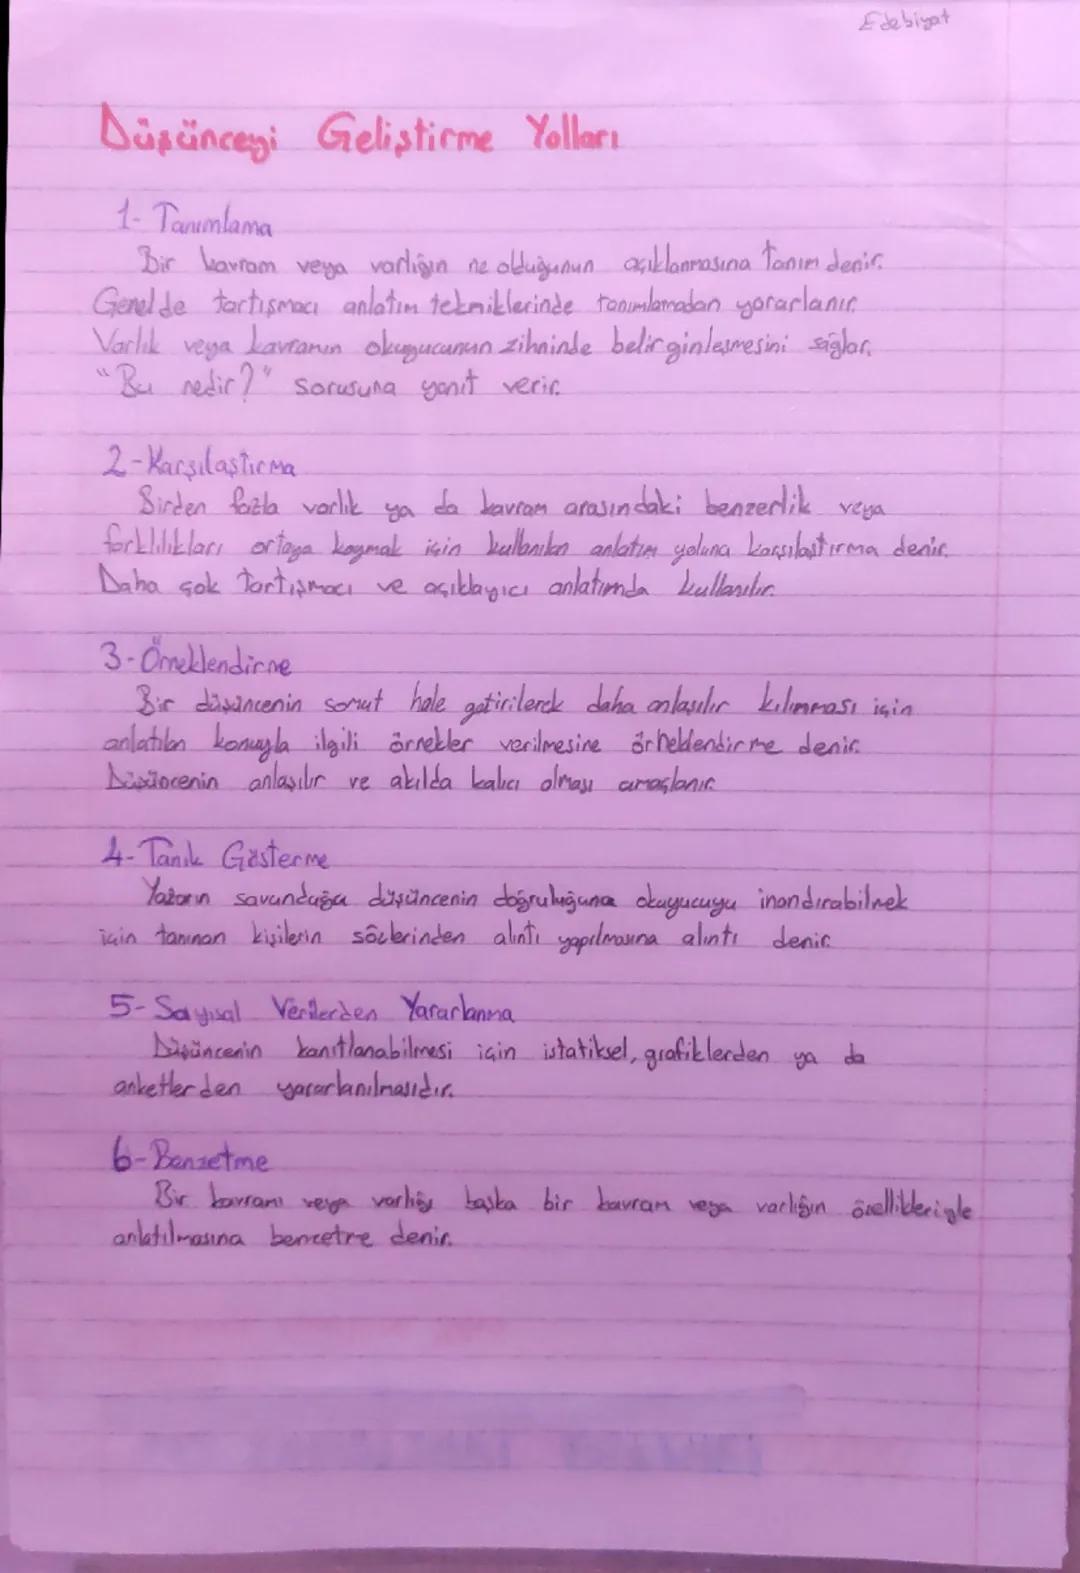 Edebiyat
Düşünceyi Geliştirme Yolları
1- Tanımlama
Bir kavram veya varlığın ne olduğunun açıklanmasına tanım denir.
Genelde tartışmacı anlatım tekniklerinde tanımlamadan yararlanır.
Varlık veya kavramın okuyucunun zihninde belirginleşmesini sağlar.
"Bu nedir?" sorusuna yanıt verir.
2- Karşılaştırma
Birden fazla varlık ya da kavram arasındaki benzerlik veya
farklılıkları ortaya koymak için kullanılan anlatım yoluna karşılaştırma denir.
Daha çok tartışmacı ve açıklayıcı anlatımda kullanılır.
3- Örneklendirme
Bir düşüncenin somut hale getirilerek daha anlaşılır kılınması için
anlatılan konuyla ilgili örnekler verilmesine örneklendirme denir.
Düşüncenin anlaşılır ve akılda kalıcı olması amaçlanır.
4- Tanık Gösterme
Yazarın savunduğu düşüncenin doğruluğuna okuyucuyu inandırabilmek
için tanınan kişilerin sözlerinden alıntı yapılmasına alıntı denir.
5- Sayısal Verilerden Yararlanma
Düşüncenin kanıtlanabilmesi için istatiksel, grafiklerden ya da
anketlerden yararlanılmasıdır.
6- Benzetme
Bir kavramı veya varlığı başka bir kavram veya varlığın özellikleriyle
anlatılmasına benzetme denir.